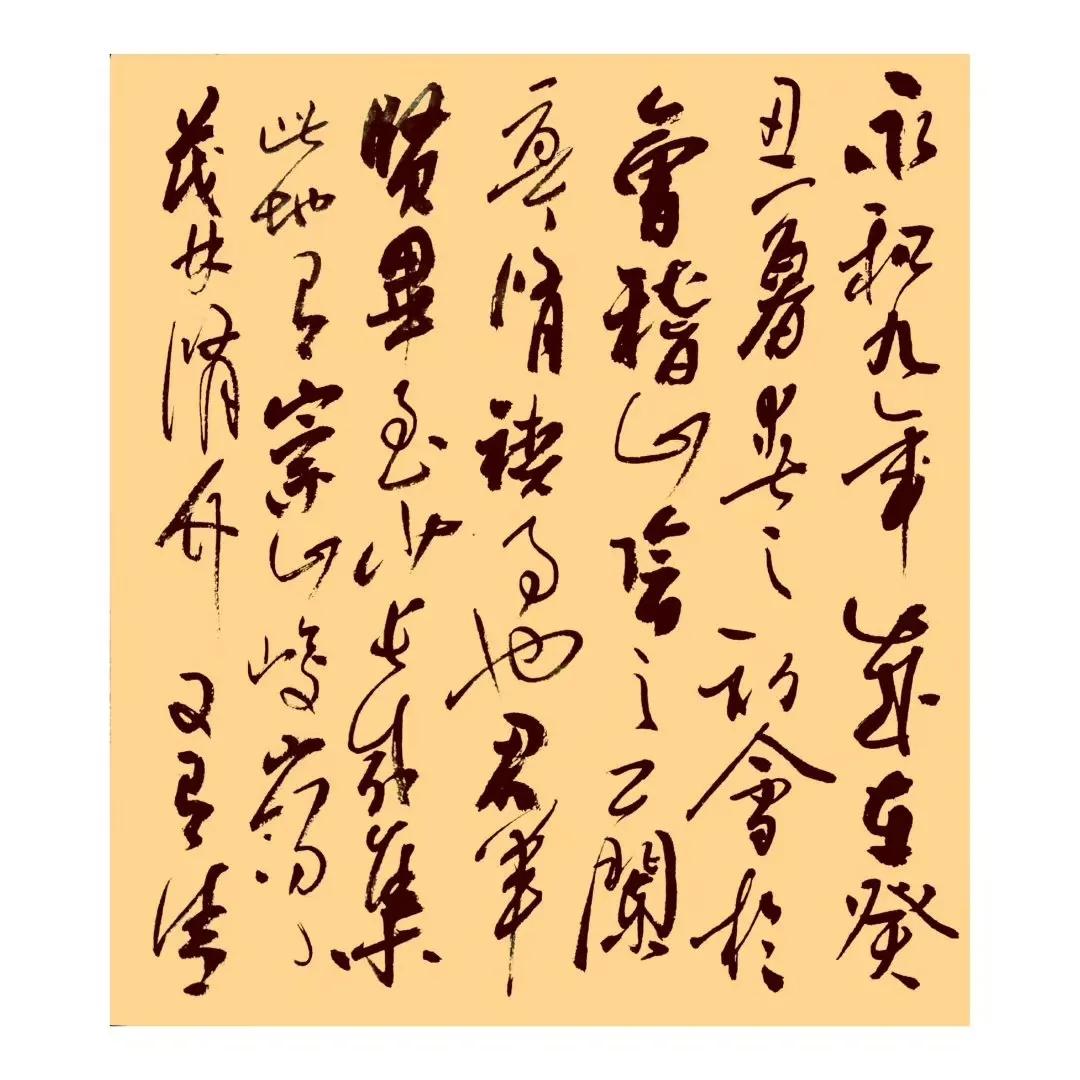 永和九年歲在癸
丑暮春之初會於
會稽山陰之蘭
亭脩禊事也羣
賢畢至少長咸集
此地有崇山峻嶺
茂林脩竹又有清